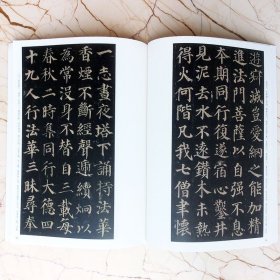 遊寂滅豈愛網之能加精
進法門菩薩以自強不息
本期同行復遂宿心鑿井
見泥去水不遠鑽木未熱
得火何階凡我七僧聿懷
一志晝夜塔下誦持法華
香煙不斷經聲遞續炯以
為常沒身不替自三載每
春秋二時集同行大德四
十九人行法華三昧尋奉